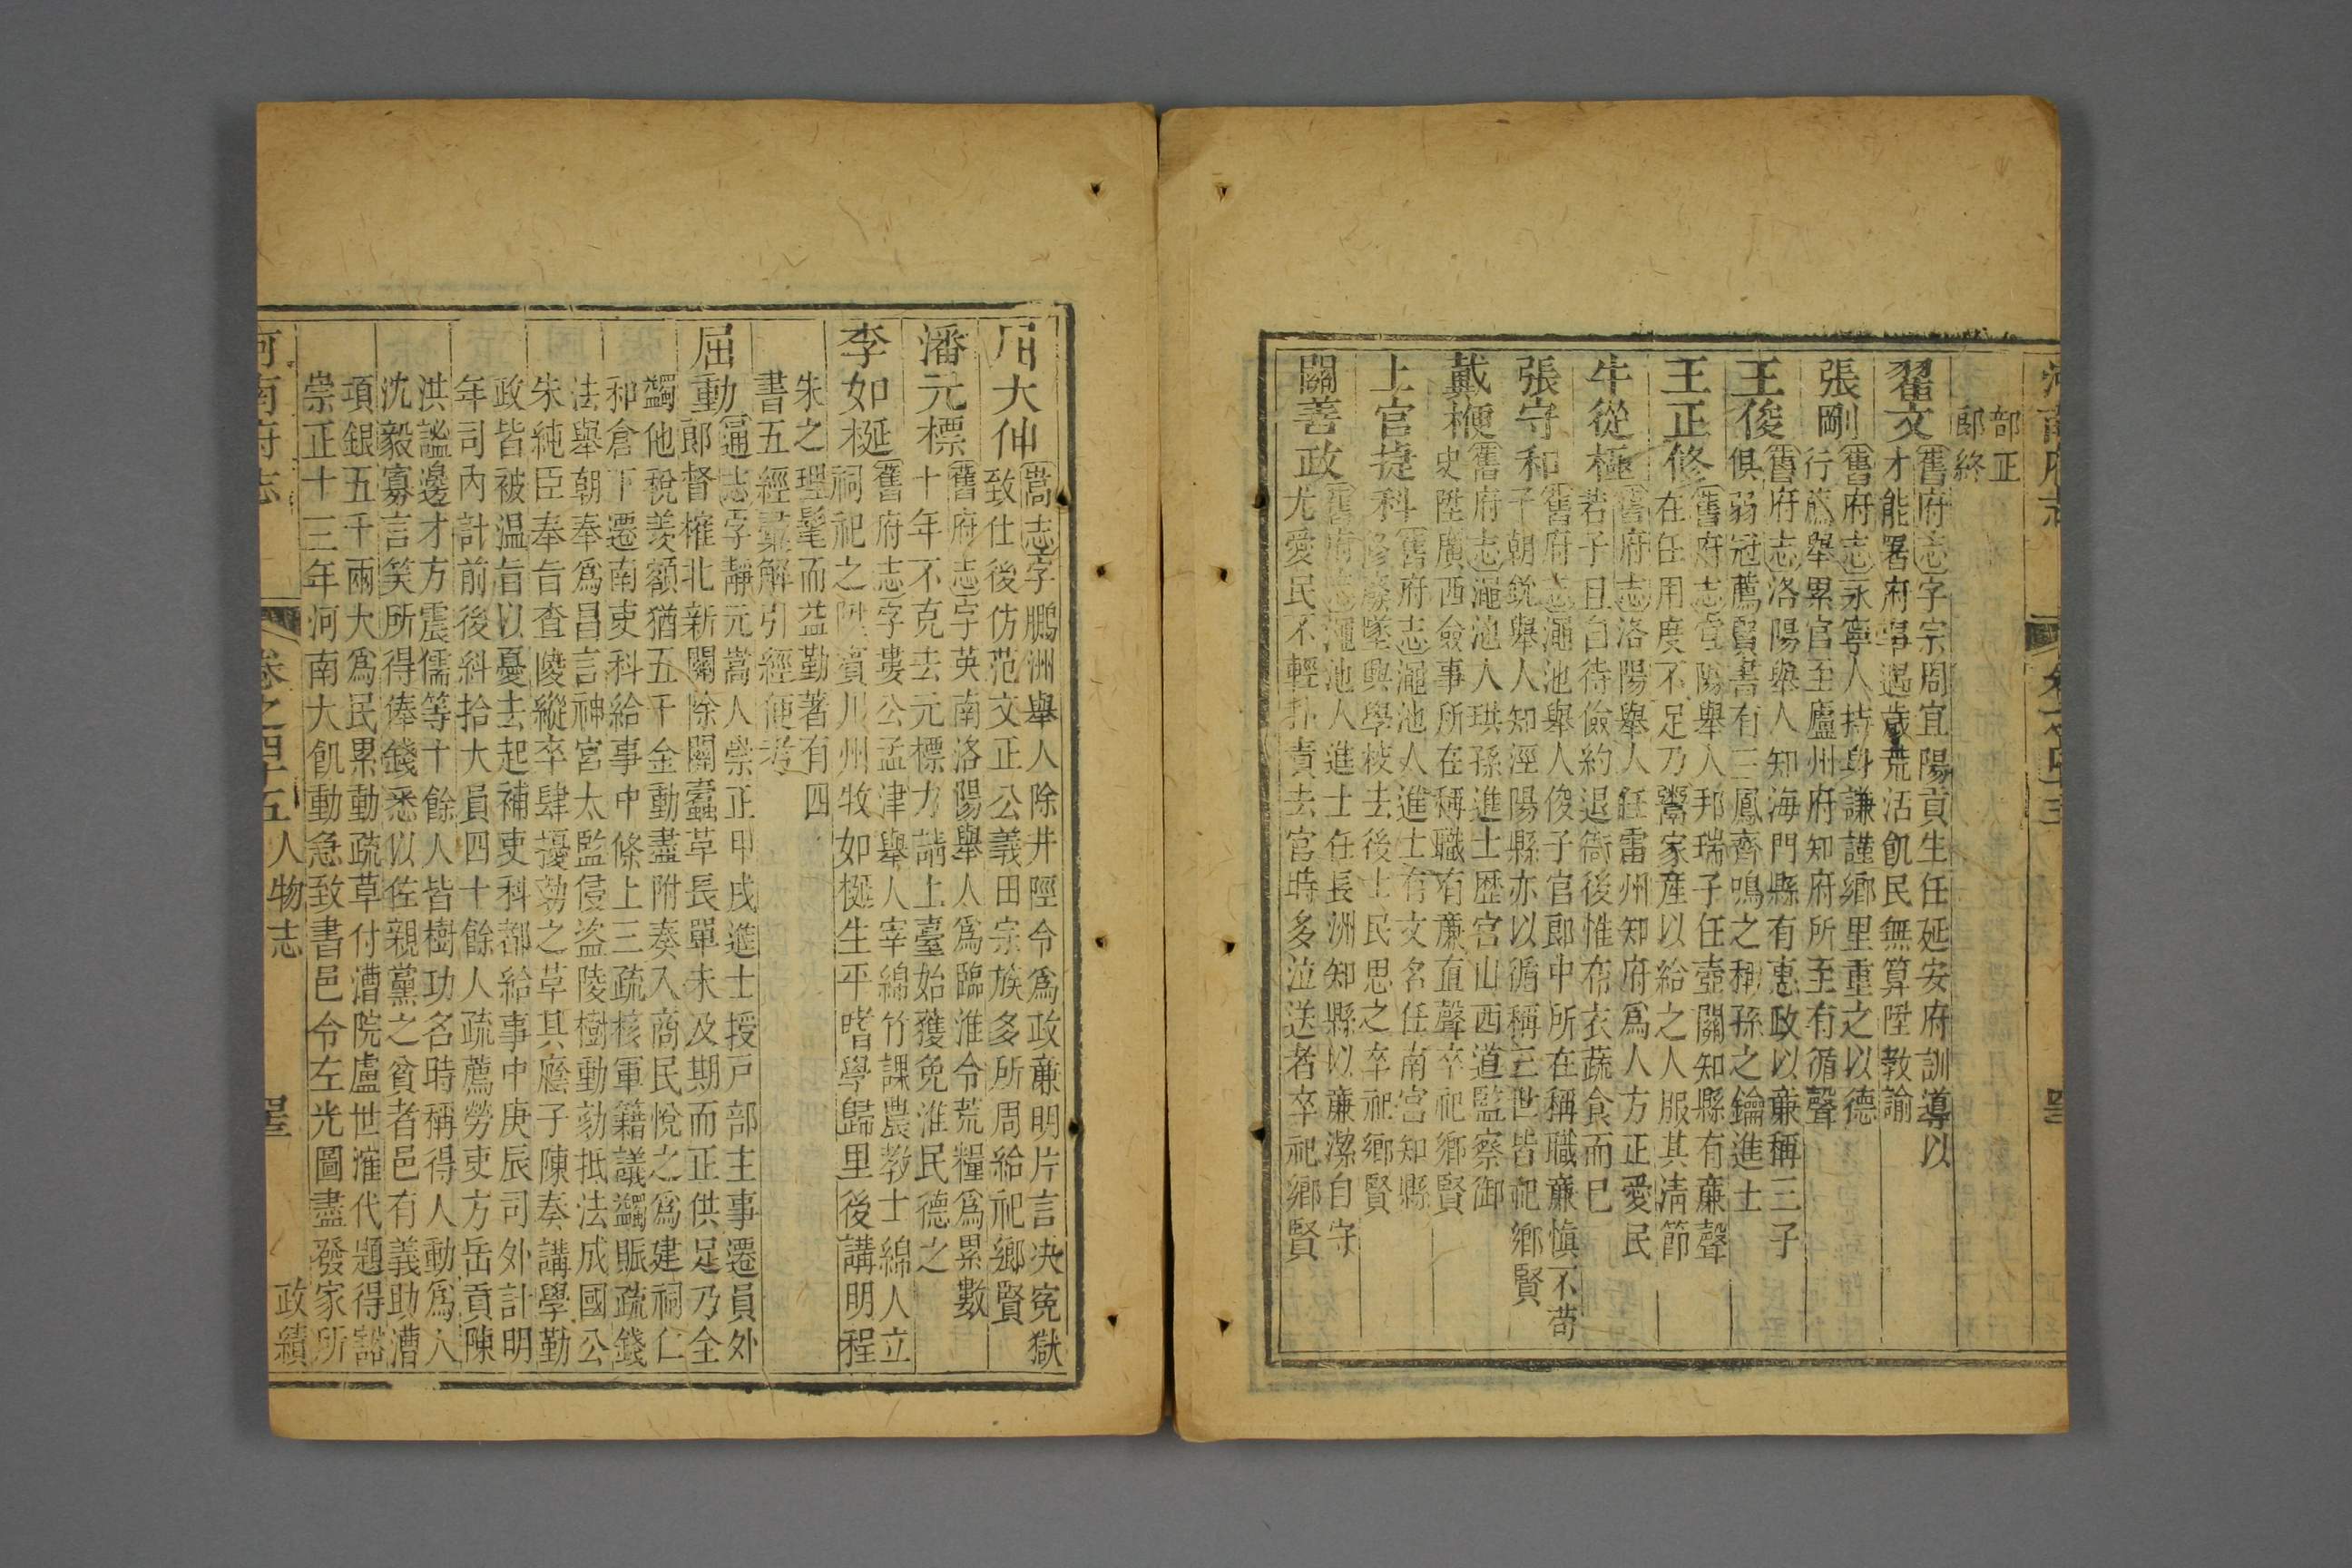 河南府志
部正
郎終
翟文
舊府志字宗周宜陽貢生任延安府訓導以
才能署府事遇歲荒活飢民無算陞教諭
張剛
舊府志永寧人持身謙謹鄉里重之以德
行薦舉累官至廬州府知府所至有循聲
王俊
舊府志洛陽舉人知海門縣有惠政以亷稱三子
俱弱冠薦賢書有三鳳齊鳴之稱孫之鑰進士
王正修
舊府志宜陽舉人邦瑞子任壺關知縣有亷聲
在任用度不足乃鬻家產以給之人服其淸節
牛從極
舊府志洛陽舉人任雷州知府爲人方正愛民
若子且自待儉約退衙後惟布衣蔬食而已
張守和
舊府志澠池舉人俊子官郎中所在稱職亷愼不苟
子朝銳舉人知涇陽縣亦以循稱三世皆祀鄉賢
戴楩
舊府志澠池人珙孫進士歷官山西道監察御
史陞廣西僉事所在稱職有亷直聲卒祀鄉賢
上官捷科
舊府志澠池人進士有文名任南宮知縣
修廢墜興學校去後士民思之卒祀鄉賢
關善政
舊府志澠池人進士任長洲知縣以亷潔自守
尤愛民不輕扑責去官時多泣送者卒祀鄉賢
大伸
嵩志字鵬洲舉人除井陘令爲政亷明片言决寃獄
致仕後仿范文正公義田宗族多所周給祀鄉賢
潘元標
舊府志字英南洛陽舉人爲臨淮令荒糧爲累數
十年不克去元標力請上臺始獲免淮民德之
李如梴
舊府志字婁公孟津舉人宰綿竹課農教士綿人立
祠祀之陞賓川州牧如梴生平嗜學歸里後講明程
朱之理髦而益勤著有四
書五經彚解引經便考
屈動
通志字靜元嵩人崇正甲戌進士授戸部主事遷員外
郎督榷北新關除關蠹草長單未及期而正供足乃全
蠲他稅羨額猶五千金動盡附奏入商民悅之爲建祠仁
和倉下遷南吏科給事中條上三疏核軍籍議蠲賑疏錢
法舉朝奉爲昌言神宮太監侵盜陵樹動劾抵法成國公
朱純臣奉旨查陵縱卒肆擾劾之草其廕子陳奏講學勤
政皆被温旨以憂去起補吏科都給事中庚辰司外計明
年司內計前後糾拾大員四十餘人疏薦勞吏方岳貢陳
洪謐邊才方震儒等十餘人皆樹功名時稱得人動爲人
沈毅寡言笑所得俸錢悉以佐親黨之貧者邑有義助漕
項銀五千兩大爲民累動疏草付漕院盧世㴶代題得豁
崇正十三年河南大飢動急致書邑令左光圖盡發家所
河南府志
卷之四十五
人物志
政績